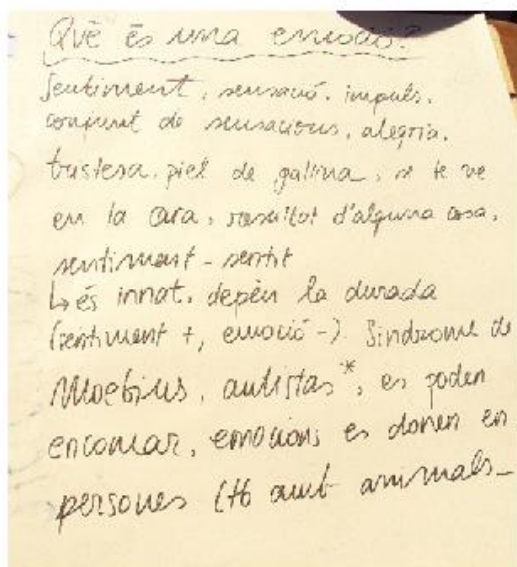 Què és una emoció?
Sentiment, sensació, impuls,
conjunt de sensacions, alegria,
tristesa, piel de gallina, se te ve
en la cara, resultat d'alguna cosa,
sentiment - sentit
↳ és innat, depèn la durada
(sentiment +, emoció -). Síndrome de
Moebius, autistas*, es poden
encomanar, emocions es donen en
persones (tb amb animals-